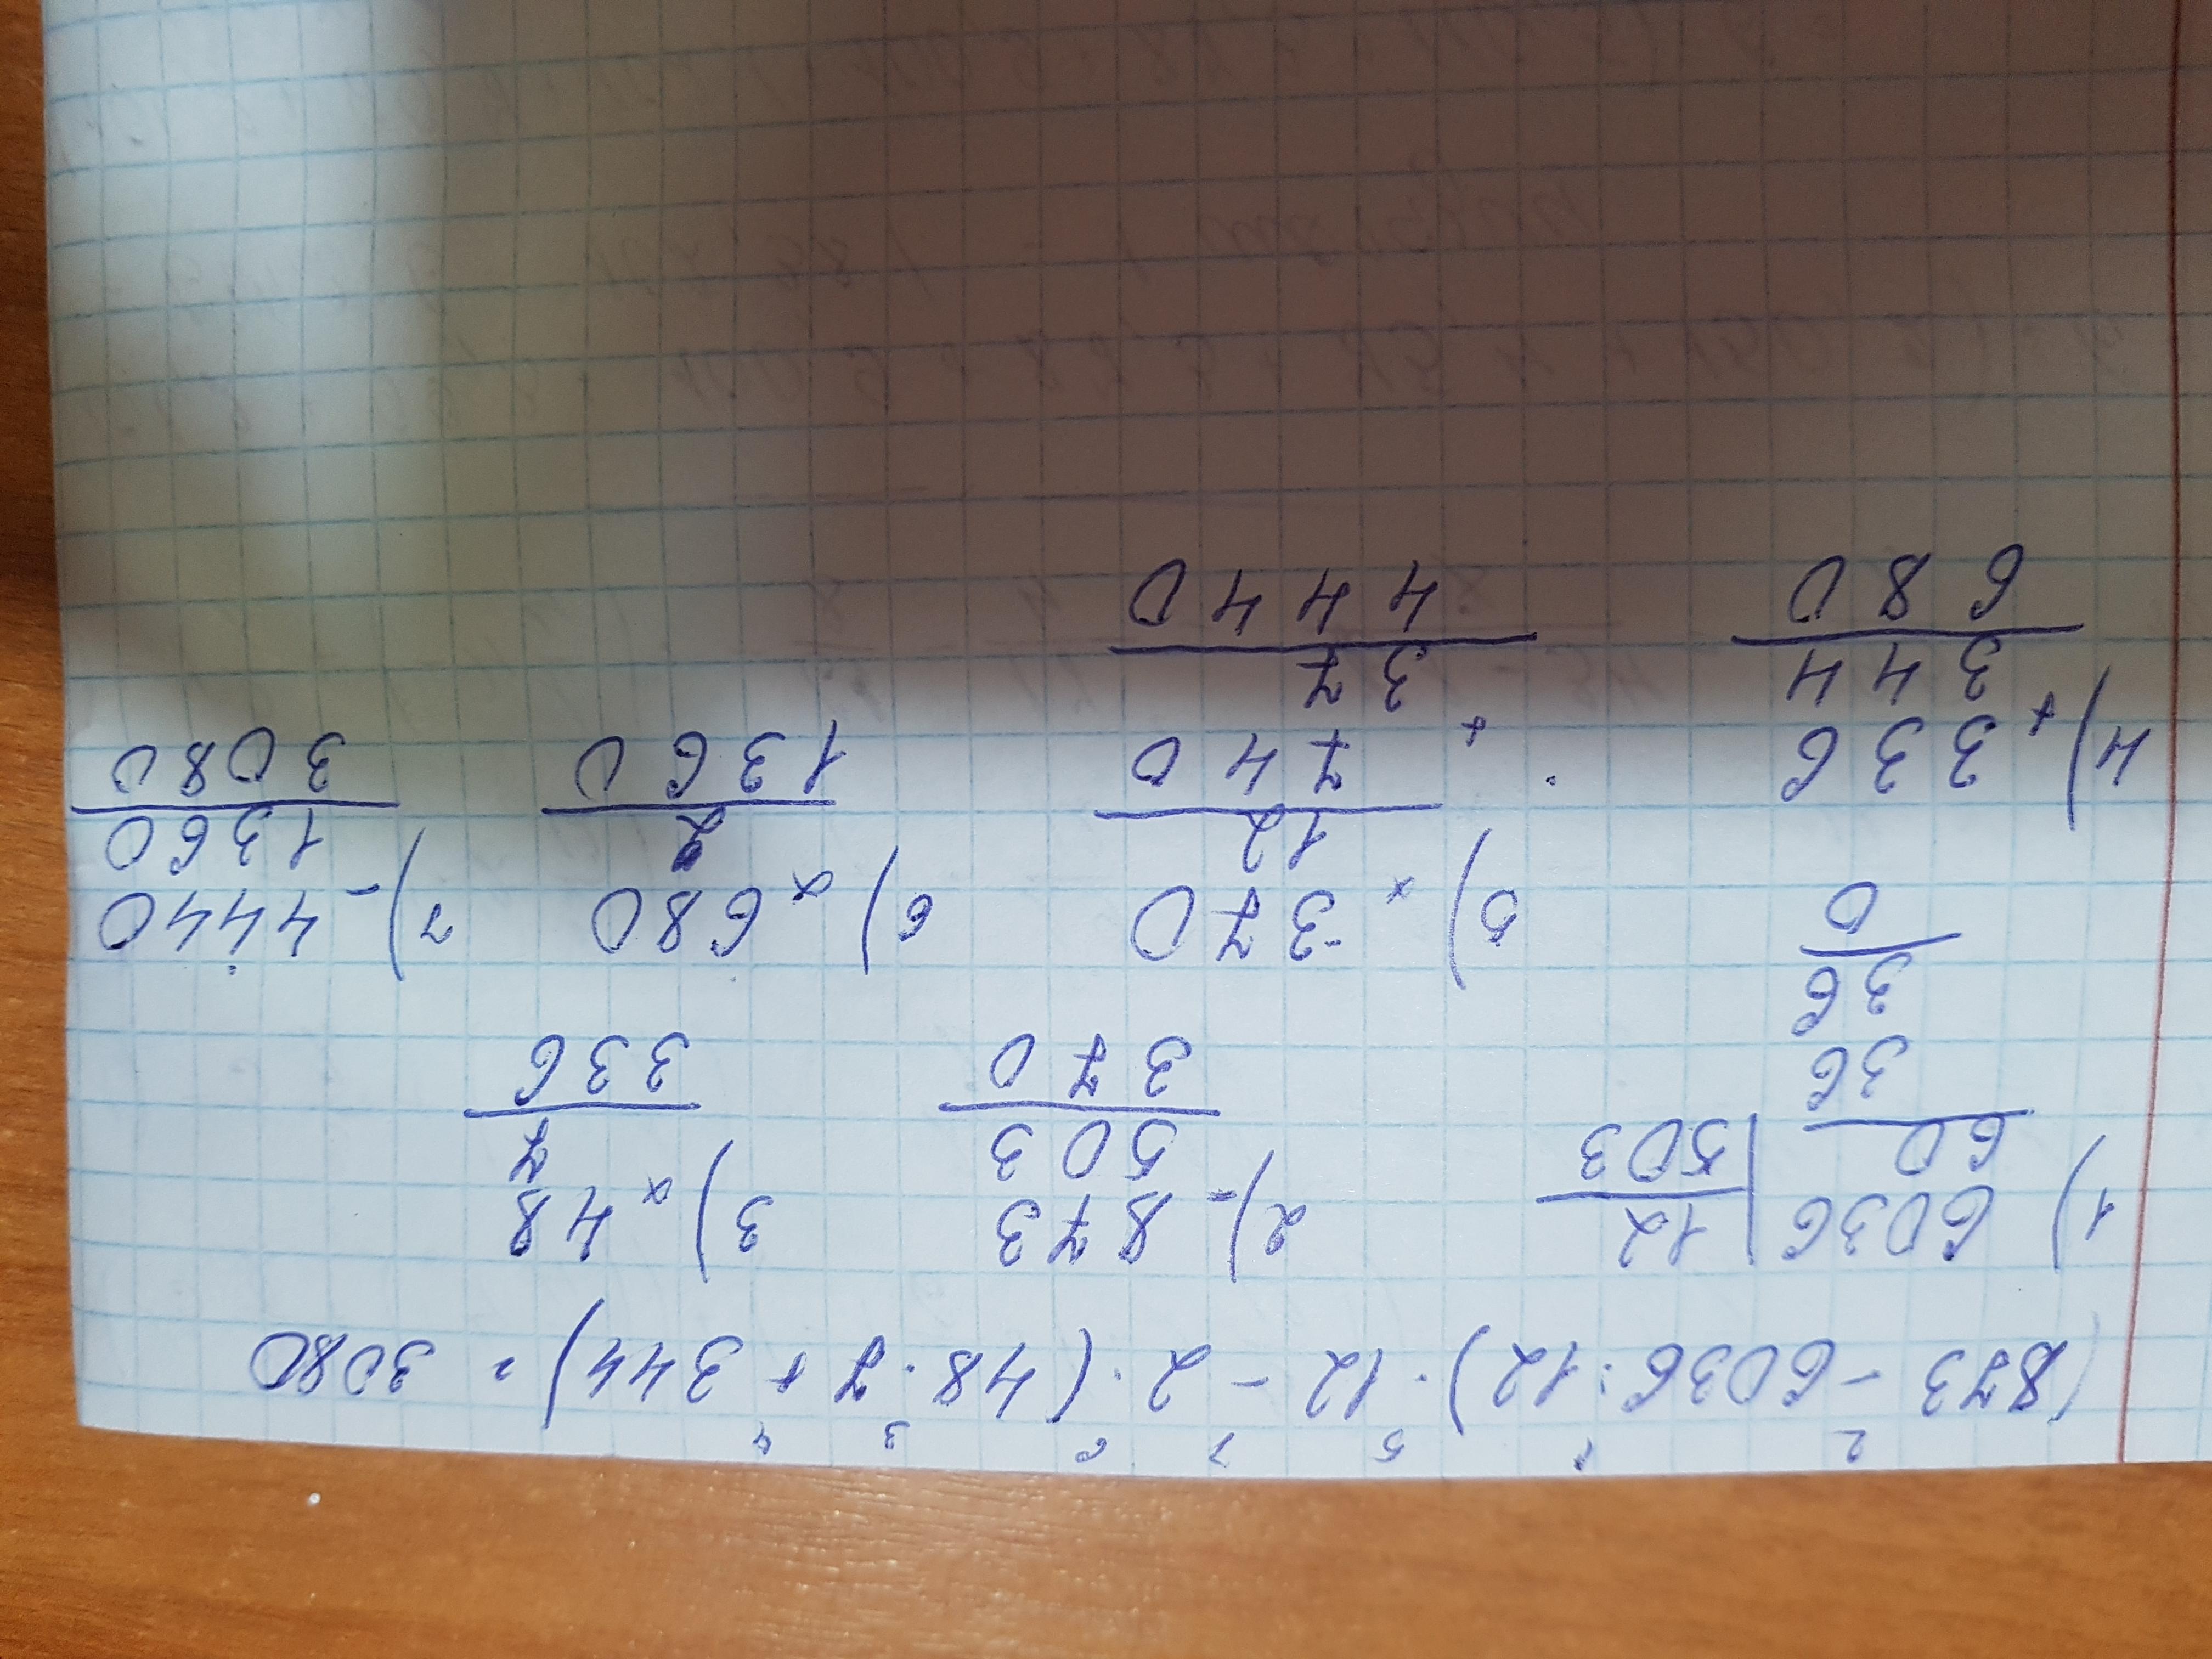 2 1 5 7 6 3 4
(873 - 6036 : 12) · 12 - 2 · (48 · 7 + 344) = 3080
1) 6036 | 12
60 | 503
36
36
0
2) - 873
503
370
3) x 48
7
336
4) + 336
344
680
5) x 370
12
+ 740
37
4440
6) x 680
2
1360
7) - 4440
1360
3080